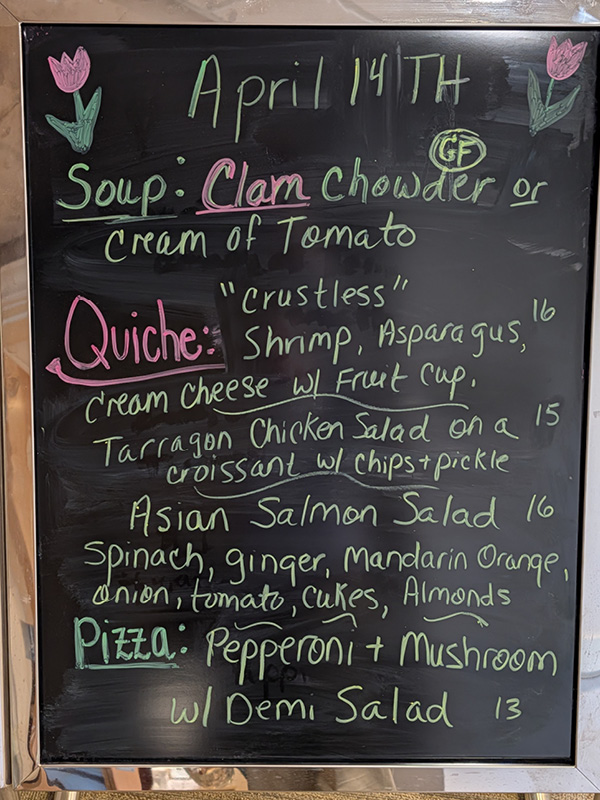 April 14TH
GF
Soup: Clam Chowder or
Cream of Tomato
"Crustless"
Quiche: Shrimp, Asparagus, 16
Cream Cheese w/ Fruit Cup.
Tarragon Chicken Salad on a 15
croissant w/ chips + pickle
Asian Salmon Salad 16
Spinach, ginger, Mandarin Orange,
onion, tomato, cukes, Almonds
Pizza: Pepperoni + Mushroom
w/ Demi Salad 13